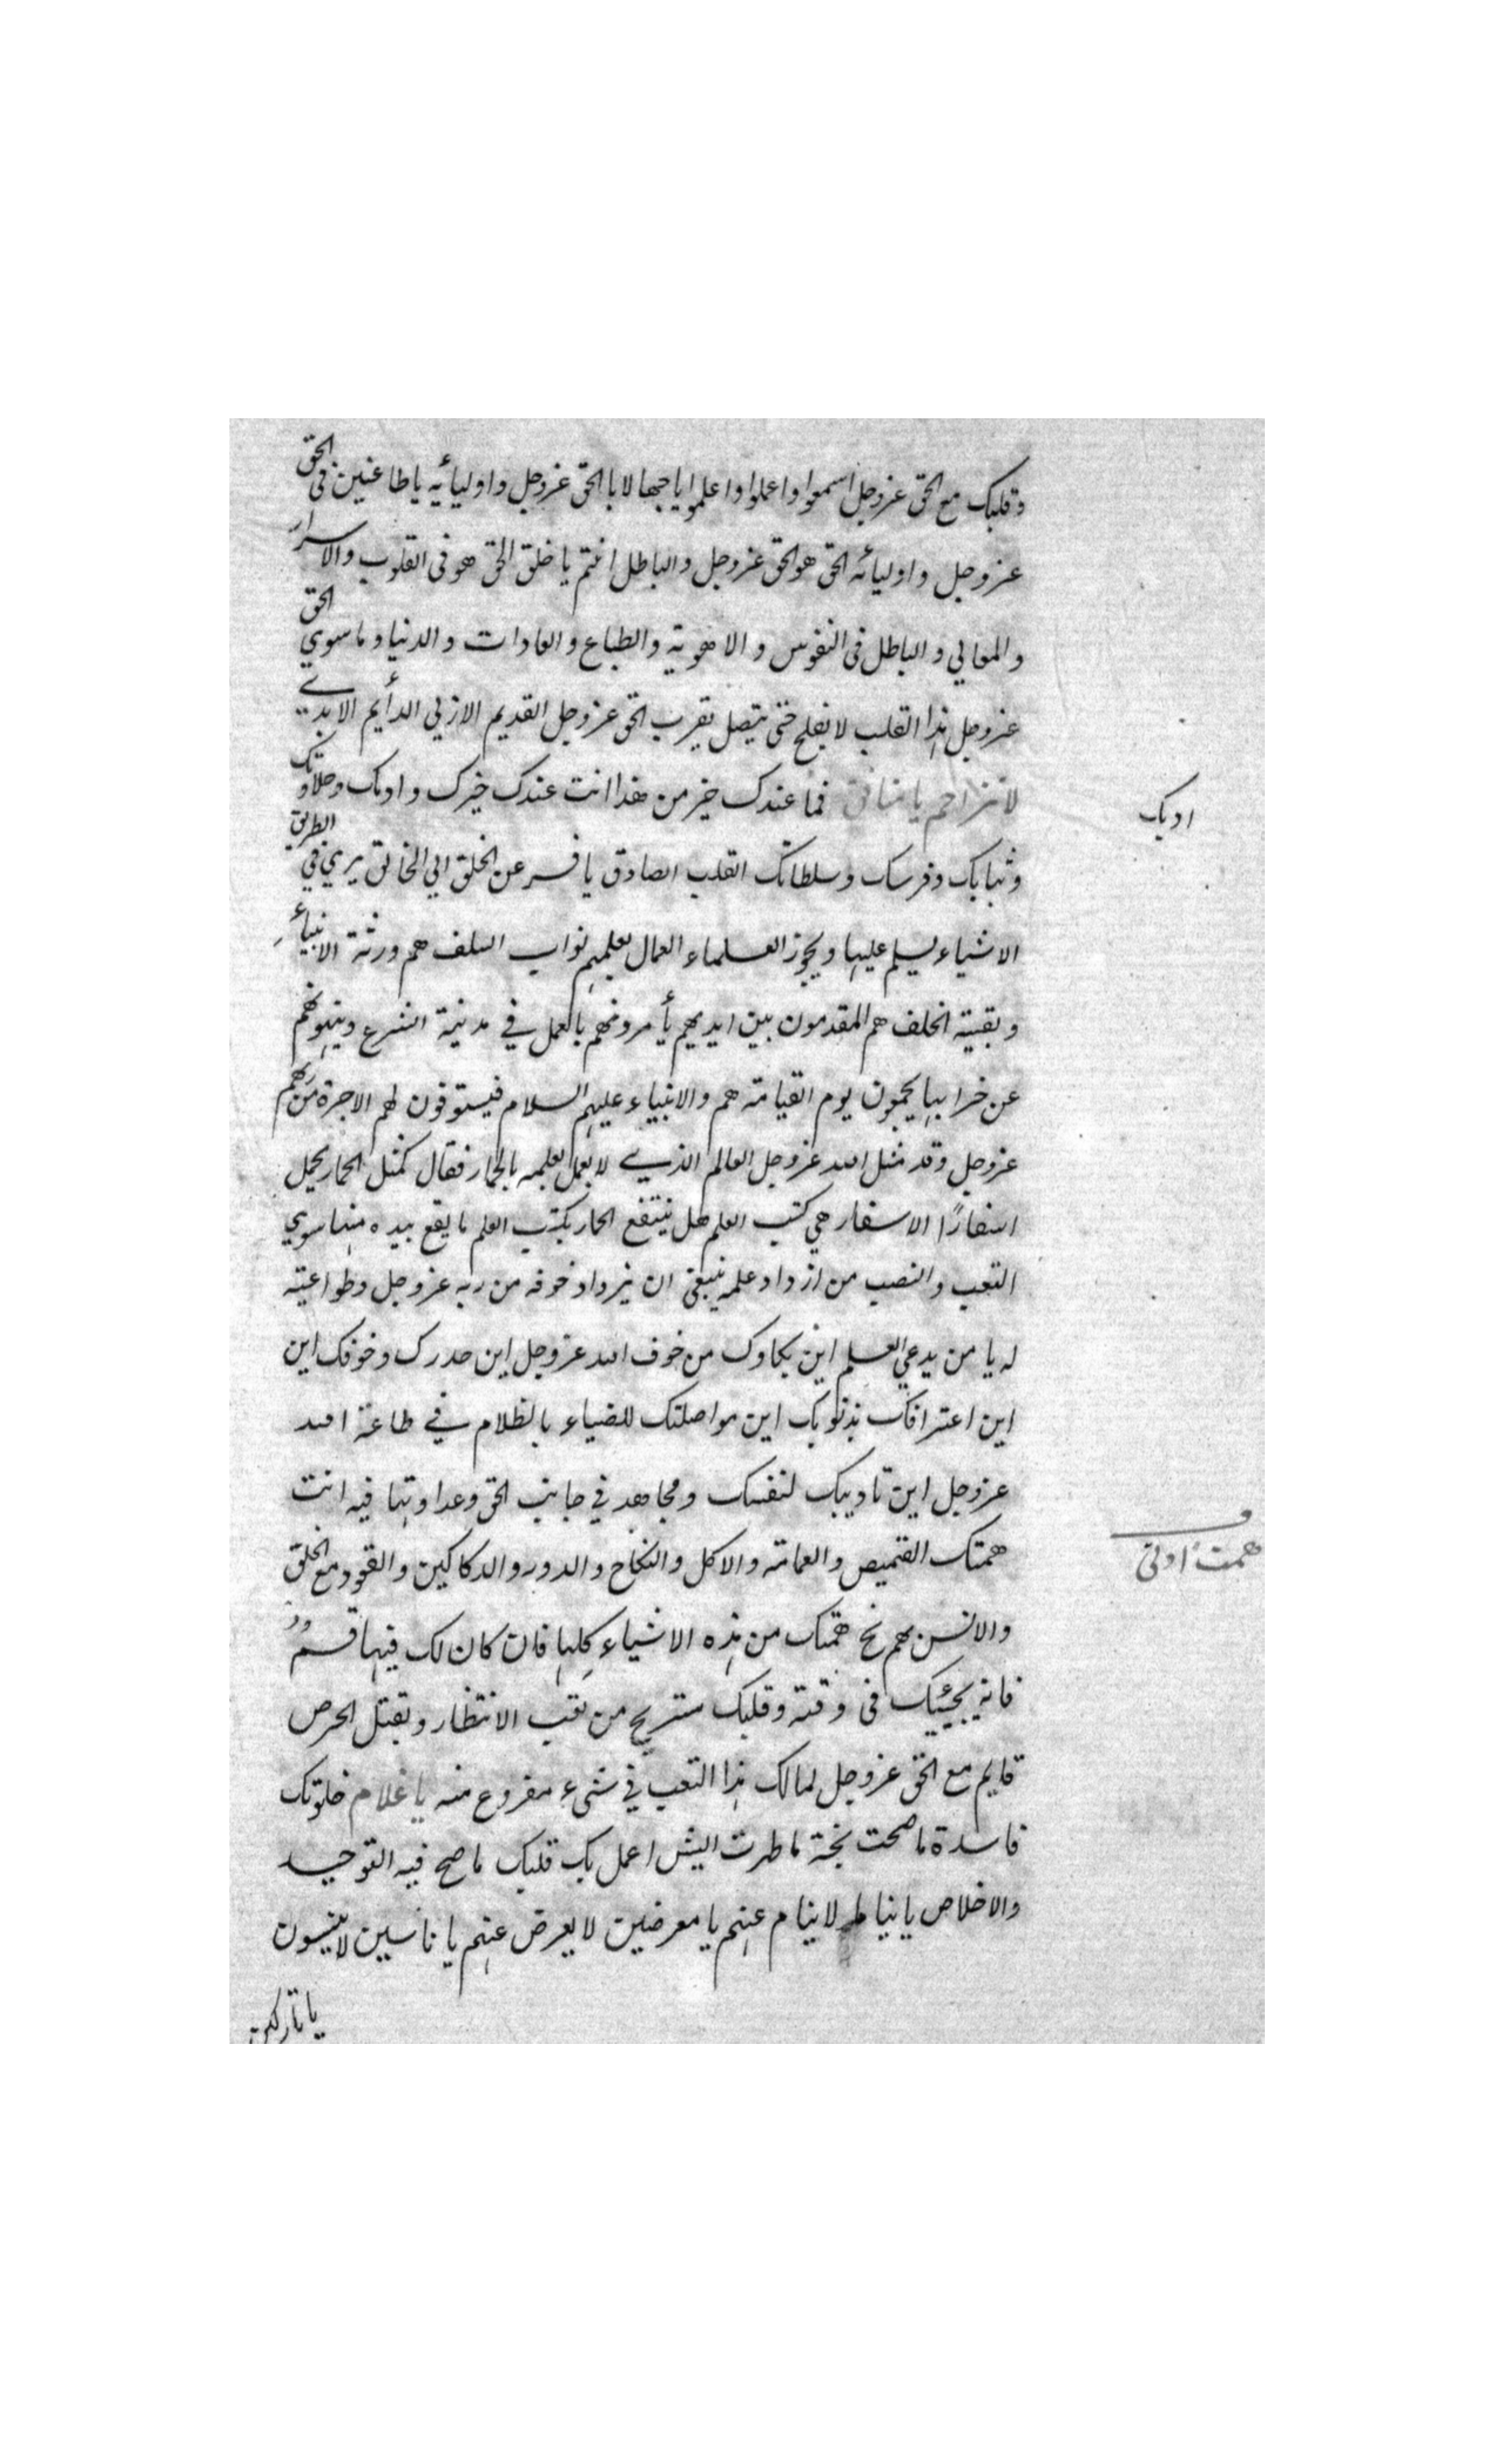 وقلبك مع الحق عزوجل اسمعوا واعملوا واعلموا ياجهالا بالحق عزوجل واوليائه ياطاغين فى الحق
عزوجل واوليائه الحق هو الحق عزوجل والباطل انتم يا خلق الحق هو فى القلوب والاسرار
والمعالي والباطل فى النفوس والاهوية والطباع والعادات والدنيا وماسوي الحق
عزوجل هذا القلب لا يفلح حتى يتصل بقرب الحق عزوجل القديم الازلي الدأيم الابدي
لا تزاحم يا منافق فما عندك خبر من هذا انت عندك خبزك وادمك وحلاوتك
وثيابك وفرسك وسلطانك القلب الصادق يافسر عن الخلق الي الخالق يري في الطريق
الاشياء يسلم عليها ويجوز العلماء العمال بعلمهم نواب السلف هم ورثة الانبياء
وبقية الخلف هم المقدمون بين ايديهم يأمرونهم بالعمل في مدينة الشرع وينهونهم
عن خرابها يجمعون يوم القيامة هم والانبياء عليهم السلام فيستوفون لهم الاجرة من ربهم
عزوجل وقد مثل الله عزوجل العالم الذي لا يعمل بعلمه بالحمار فقال كمثل الحمار يحمل
اسفارًا الاسفار هي كتب العلم هل ينتفع الحمار بكتب العلم ما يقع بيده منها سوي
التعب والنصب من ازداد علمه ينبغى ان يزداد خوفه من ربه عزوجل وطواعيته
له يا من يدعي العلم اين بكاوك من خوف الله عزوجل اين حدرك وخوفك اين
اين اعترافك بذنوبك اين مواصلتك للضياء بالظلام في طاعة الله
عزوجل اين تاديبك لنفسك ومجاهد في جانب الحق وعداوتها فيه انت
همتك القميص والعمامة والاكل والنكاح والدور والدكاكين والقعود مع الخلق
والانس بهم نح همتك من هذه الاشياء كلها فان كان لك فيها قسمٌ
فانه يجئيك فى وقته وقلبك مستريح من تعب الانتظار وبقتل الحرص
قايم مع الحق عزوجل لمالك هذا التعب في شىء مفروع منه يا غلام خلوتك
فاسدة ما صحت نجة ما طهرت اليش اعمل بك قلبك ما صح فيه التوحيد
والاخلاص يا نياط لا ينام عنهم يا معرضين لا يعرض عنهم يا ناسين لا ينسون
يا تاركين
ادبك
همت ادنى